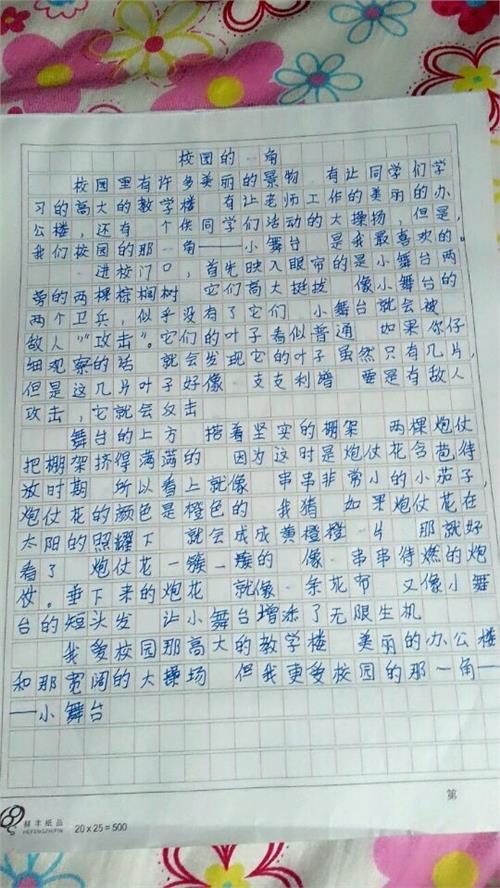 校园的一角
校园里有许多美丽的景物 有让同学们学
习的高大的教学楼 有让老师工作的美丽的办
公楼，还有 个供同学们活动的大操场，但是，
我们校园的那一角——小舞台 是我最喜欢的。
进校门口，首先映入眼帘的是小舞台两
旁的两棵棕榈树 它们高大挺拔 像小舞台的
两个卫兵，似乎没有了它们 小舞台就会被
敌人“攻击”。它们的叶子看似普通 如果你仔
细观察的话 就会发现它的叶子虽然只有几片，
但是这几片叶子好像 支支利 要是有敌人
攻击，它就会反击
舞台的上方 搭着坚实的棚架 两棵炮仗
把棚架挤得满满的 因为这时是炮仗花含苞待
放时期 所以看上就像 串串非常小的小茄子，
炮仗花的颜色是橙色的 我猜 如果炮仗花在
太阳的照耀下 就会成成黄橙橙一片 那就好
看了 炮仗花一簇一簇的 像一串串待燃的炮
仗。垂下来的炮花 就像一条花布 又像小舞
台的短头发 让小舞台增添了无限生机
我爱校园那高大的教学楼 美丽的办公楼
和那宽阔的大操场 但我更爱校园的那一角—
——小舞台
第
赫丰纸品
HEFENGZHIPIN
20x25=500